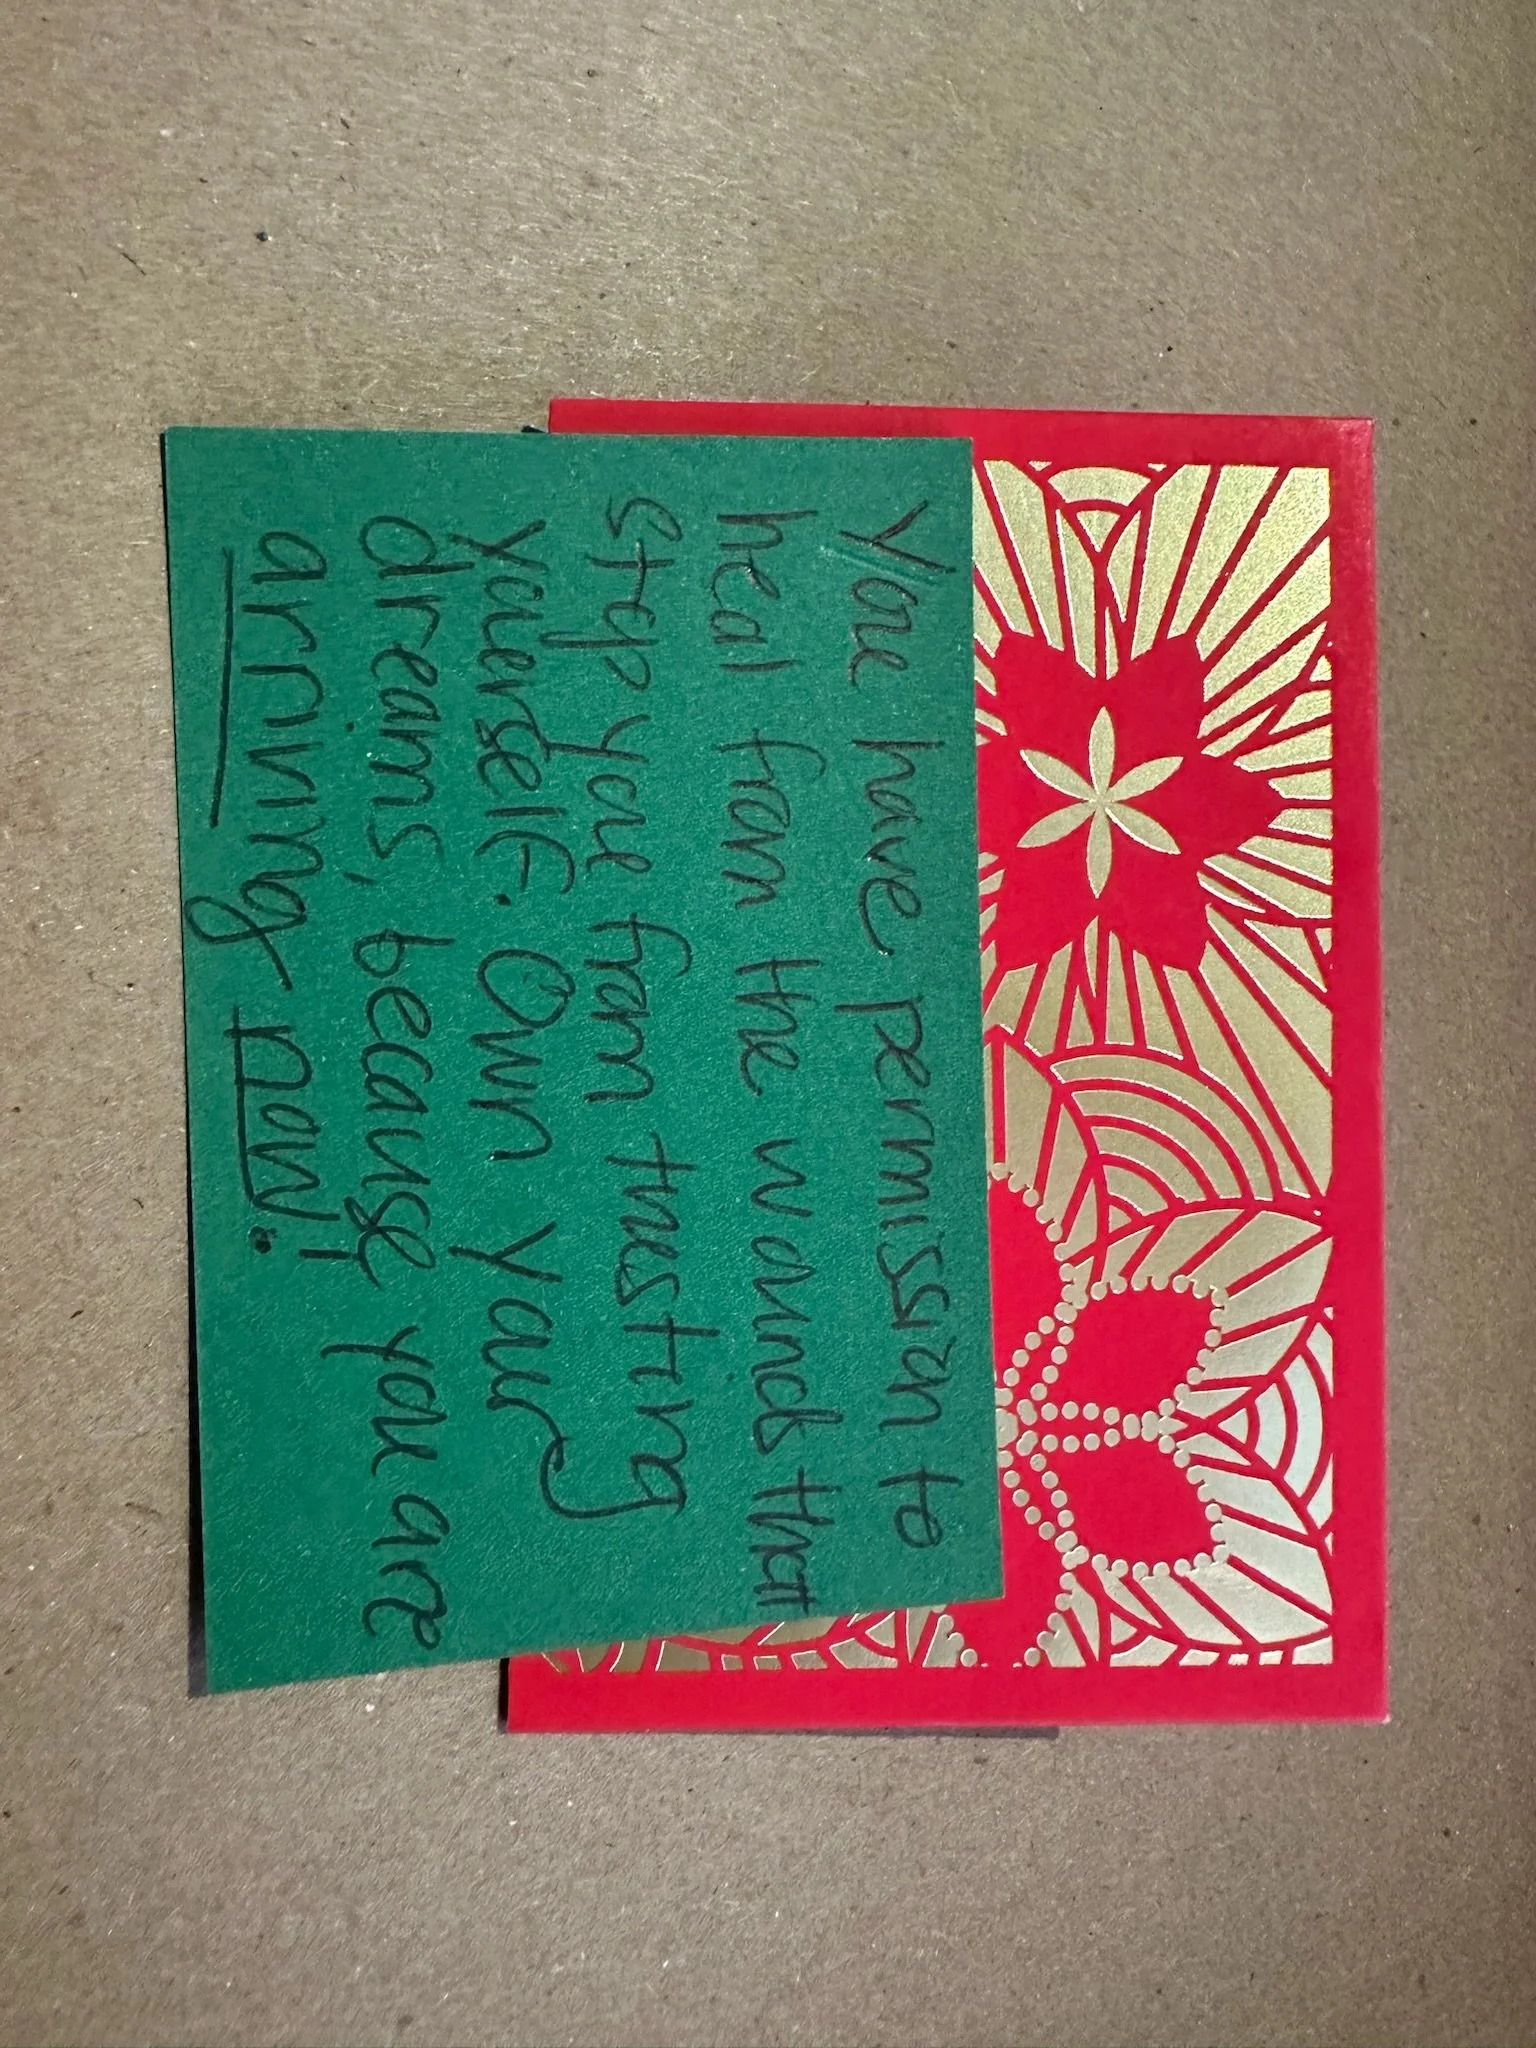 You have permission to
heal from the wounds that
step you from trusting
yourself. Own your
dreams, because you are
arriving now!